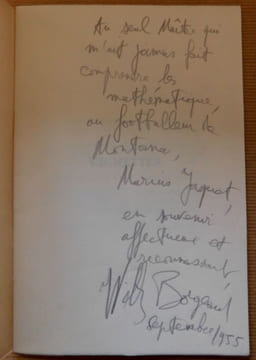 Au seul Maître qui
m'ait jamais fait
comprendre les
mathématiques,
au footballeur de
Montana,
Marius Jaquet,
en souvenir
affectueux et
reconnaissant
Borgeaud
septembre 1955